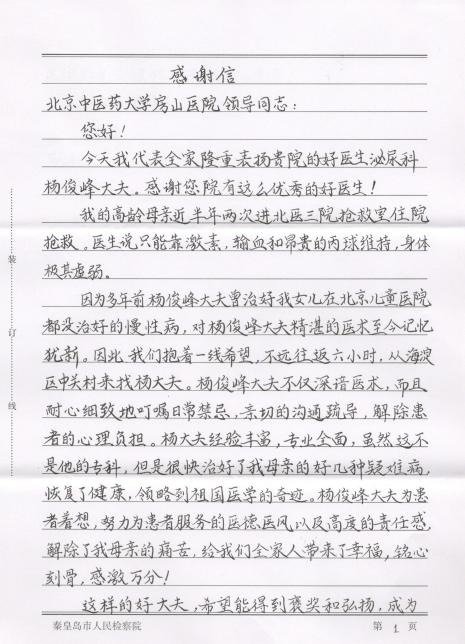 感谢信
北京中医药大学房山医院领导同志：
您好！
今天我代表全家隆重表扬贵院的好医生泌尿科
杨俊峰大夫。感谢您院有这么优秀的好医生！
我的高龄母亲近半年两次进北医三院抢救室住院
抢救。医生说只能靠激素，输血和昂贵的丙球维持，身体
极其虚弱。
因为多年前杨俊峰大夫曾治好我女儿在北京儿童医院
都没治好的慢性病，对杨俊峰大夫精湛的医术至今记忆
犹新。因此我们抱着一线希望，不远往返六小时，从海淀
区中关村来找杨大夫。杨俊峰大夫不仅深谙医术，而且
耐心细致地叮嘱日常禁忌，亲切的沟通疏导，解除患
者的心理负担。杨大夫经验丰富，专业全面，虽然这不
是他的专科，但是很快治好了我母亲的好几种疑难病，
恢复了健康，领略到祖国医学的奇迹。杨俊峰大夫为患
者着想，努力为患者服务的医德医风，以及高度的责任感，
解除了我母亲的痛苦，给我们全家人带来了幸福，铭心
刻骨，感激万分！
这样的好大夫，希望能得到褒奖和弘扬，成为
装
订
线
秦皇岛市人民检察院 第 1 页